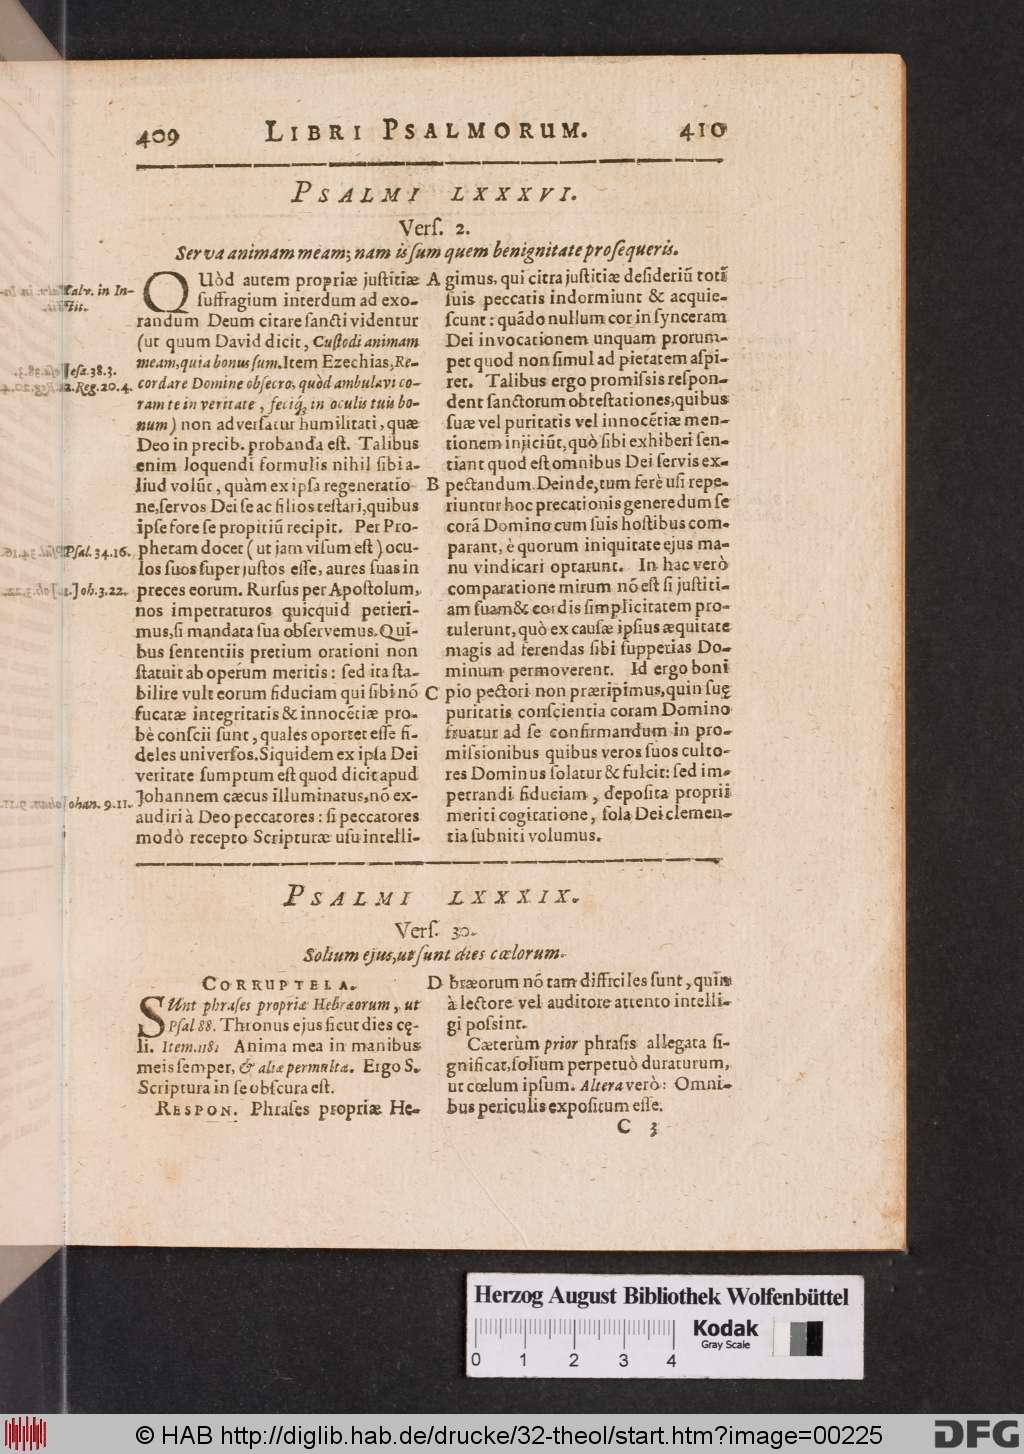 409 LIBRI PSALMORUM. 410
PSALMI LXXXVI.
Verſ. 2.
Serva animam meam; nam is ſum quem benignitate proſequeris.
Calv. in In-
ſtit.
QUòd autem propriæ juſtitiæ
ſuffragium interdum ad exo-
randum Deum citare ſancti videntur
(ut quum David dicit, Cuſtodi animam
meam, quia bonus ſum. Item Ezechias, Re-
Jeſa. 38. 3.
2. Reg. 20. 4.
cordare Domine obſecro, quòd ambulavi co-
ram te in veritate, feciq́; in oculis tuis bo-
num) non adverſatur humilitati, quæ
Deo in precib. probanda eſt. Talibus
enim loquendi formulis nihil ſibi a-
liud volũt, quàm ex ipſa regeneratio-
ne, ſervos Dei ſe ac filios teſtari, quibus
ipſe fore ſe propitiũ recipit. Per Pro-
phetam docet (ut jam viſum eſt) ocu-
Pſal. 34. 16.
los ſuos ſuper juſtos eſſe, aures ſuas in
preces eorum. Rurſus per Apoſtolum,
1. Joh. 3. 22.
nos impetraturos quicquid petieri-
mus, ſi mandata ſua obſervemus. Qui-
bus ſententiis pretium orationi non
ſtatuit ab operum meritis: ſed ita ſta-
bilire vult eorum fiduciam qui ſibi nõ
fucatæ integritatis & innocẽtiæ pro-
bè conſcii ſunt, quales oportet eſſe fi-
deles univerſos. Siquidem ex ipſa Dei
veritate ſumptum eſt quod dicit apud
Johannem cæcus illuminatus, nõ ex-
Johan. 9. 11.
audiri à Deo peccatores: ſi peccatores
modò recepto Scripturæ uſu intelli-
A gimus, qui citra juſtitiæ deſideriũ toti
ſuis peccatis indormiunt & acquie-
ſcunt: quãdo nullum cor in ſynceram
Dei invocationem unquam prorum-
pet quod non ſimul ad pietatem aſpi-
ret. Talibus ergo promiſsis reſpon-
dent ſanctorum obteſtationes, quibus
ſuæ vel puritatis vel innocẽtiæ men-
tionem injiciũt, quò ſibi exhiberi ſen-
tiant quod eſt omnibus Dei ſervis ex-
B pectandum. Deinde, tum ferè uſi repe-
riuntur hoc precationis genere dum ſe
corã Domino cum ſuis hoſtibus com-
parant, è quorum iniquitate ejus ma-
nu vindicari optarunt. In hac verò
comparatione mirum nõ eſt ſi juſtiti-
am ſuam & cordis ſimplicitatem pro-
tulerunt, quò ex cauſæ ipſius æquitate
magis ad ferendas ſibi ſuppetias Do-
minum permoverent. Id ergo boni
C pio pectori non præripimus, quin ſuę
puritatis conſcientia coram Domino
fruatur ad ſe confirmandum in pro-
miſsionibus quibus veros ſuos culto-
res Dominus ſolatur & fulcit: ſed im-
petrandi fiduciam, depoſita proprii
meriti cogitatione, ſola Dei clemen-
tia ſubniti volumus.
PSALMI LXXXIX.
Verſ. 30.
Solium ejus, ut ſunt dies cœlorum.
CORRUPTELA.
SUnt phraſes propriæ Hebræorum, ut
Pſal 88. Thronus ejus ſicut dies cę-
li. Item. 118: Anima mea in manibus
meis ſemper, & aliæ permultæ. Ergo S.
Scriptura in ſe obſcura eſt.
RESPON. Phraſes propriæ He-
D bræorum nõ tam difficiles ſunt, quin
à lectore vel auditore attento intelli-
gi poſsint.
Cæterùm prior phraſis allegata ſi-
gnificat, ſolium perpetuò duraturum,
ut cœlum ipſum. Altera verò: Omni-
bus periculis expoſitum eſſe.
C 3
Herzog August Bibliothek Wolfenbüttel
0 1 2 3 4
Kodak
Gray Scale
© HAB http://diglib.hab.de/drucke/32-theol/start.htm?image=00225
DFG